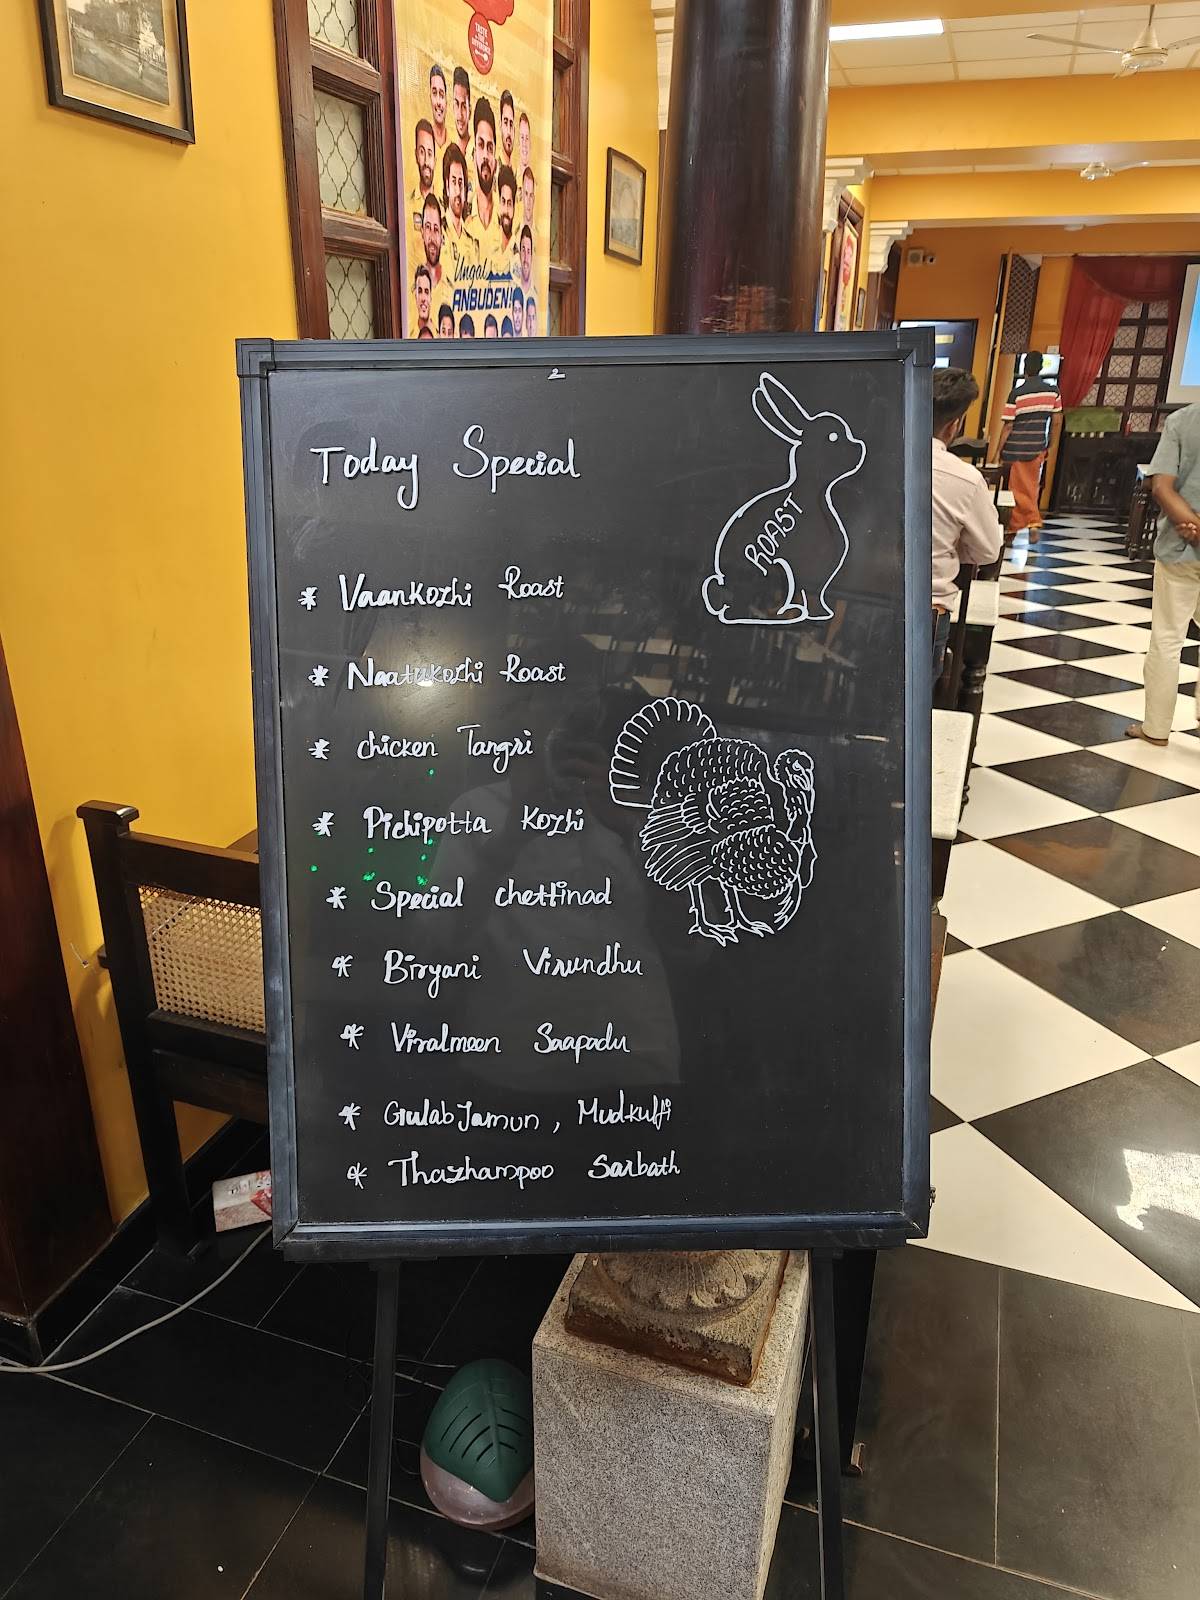 TASTE
THE
Ungal
ANBUDEN!
Today Special
ROAST
* VaanKozhi Roast
* Naatukozhi Roast
* chicken Tangri
* Pichipotta Kozhi
* Special chettinad
* Biryani Virundhu
* Viralmeen Saapadu
* Gulab Jamun, Mudkulfi
* Thazhampoo Sarbath